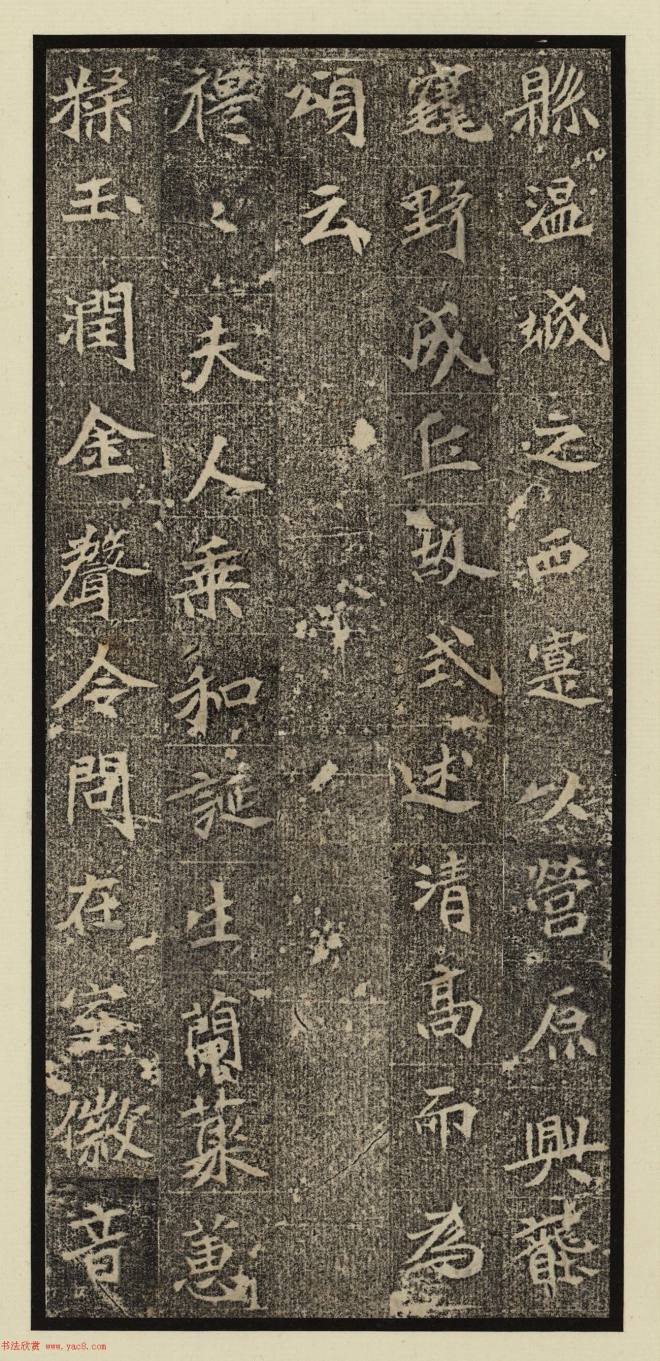 縣温城之西寔以營原興壟
寞野成丘故式述清高而為
頌云
穆〻夫人乗和誕生蘭蕤蕙
糅玉潤金聲令問在室徽音
书法欣赏 www.yac8.com